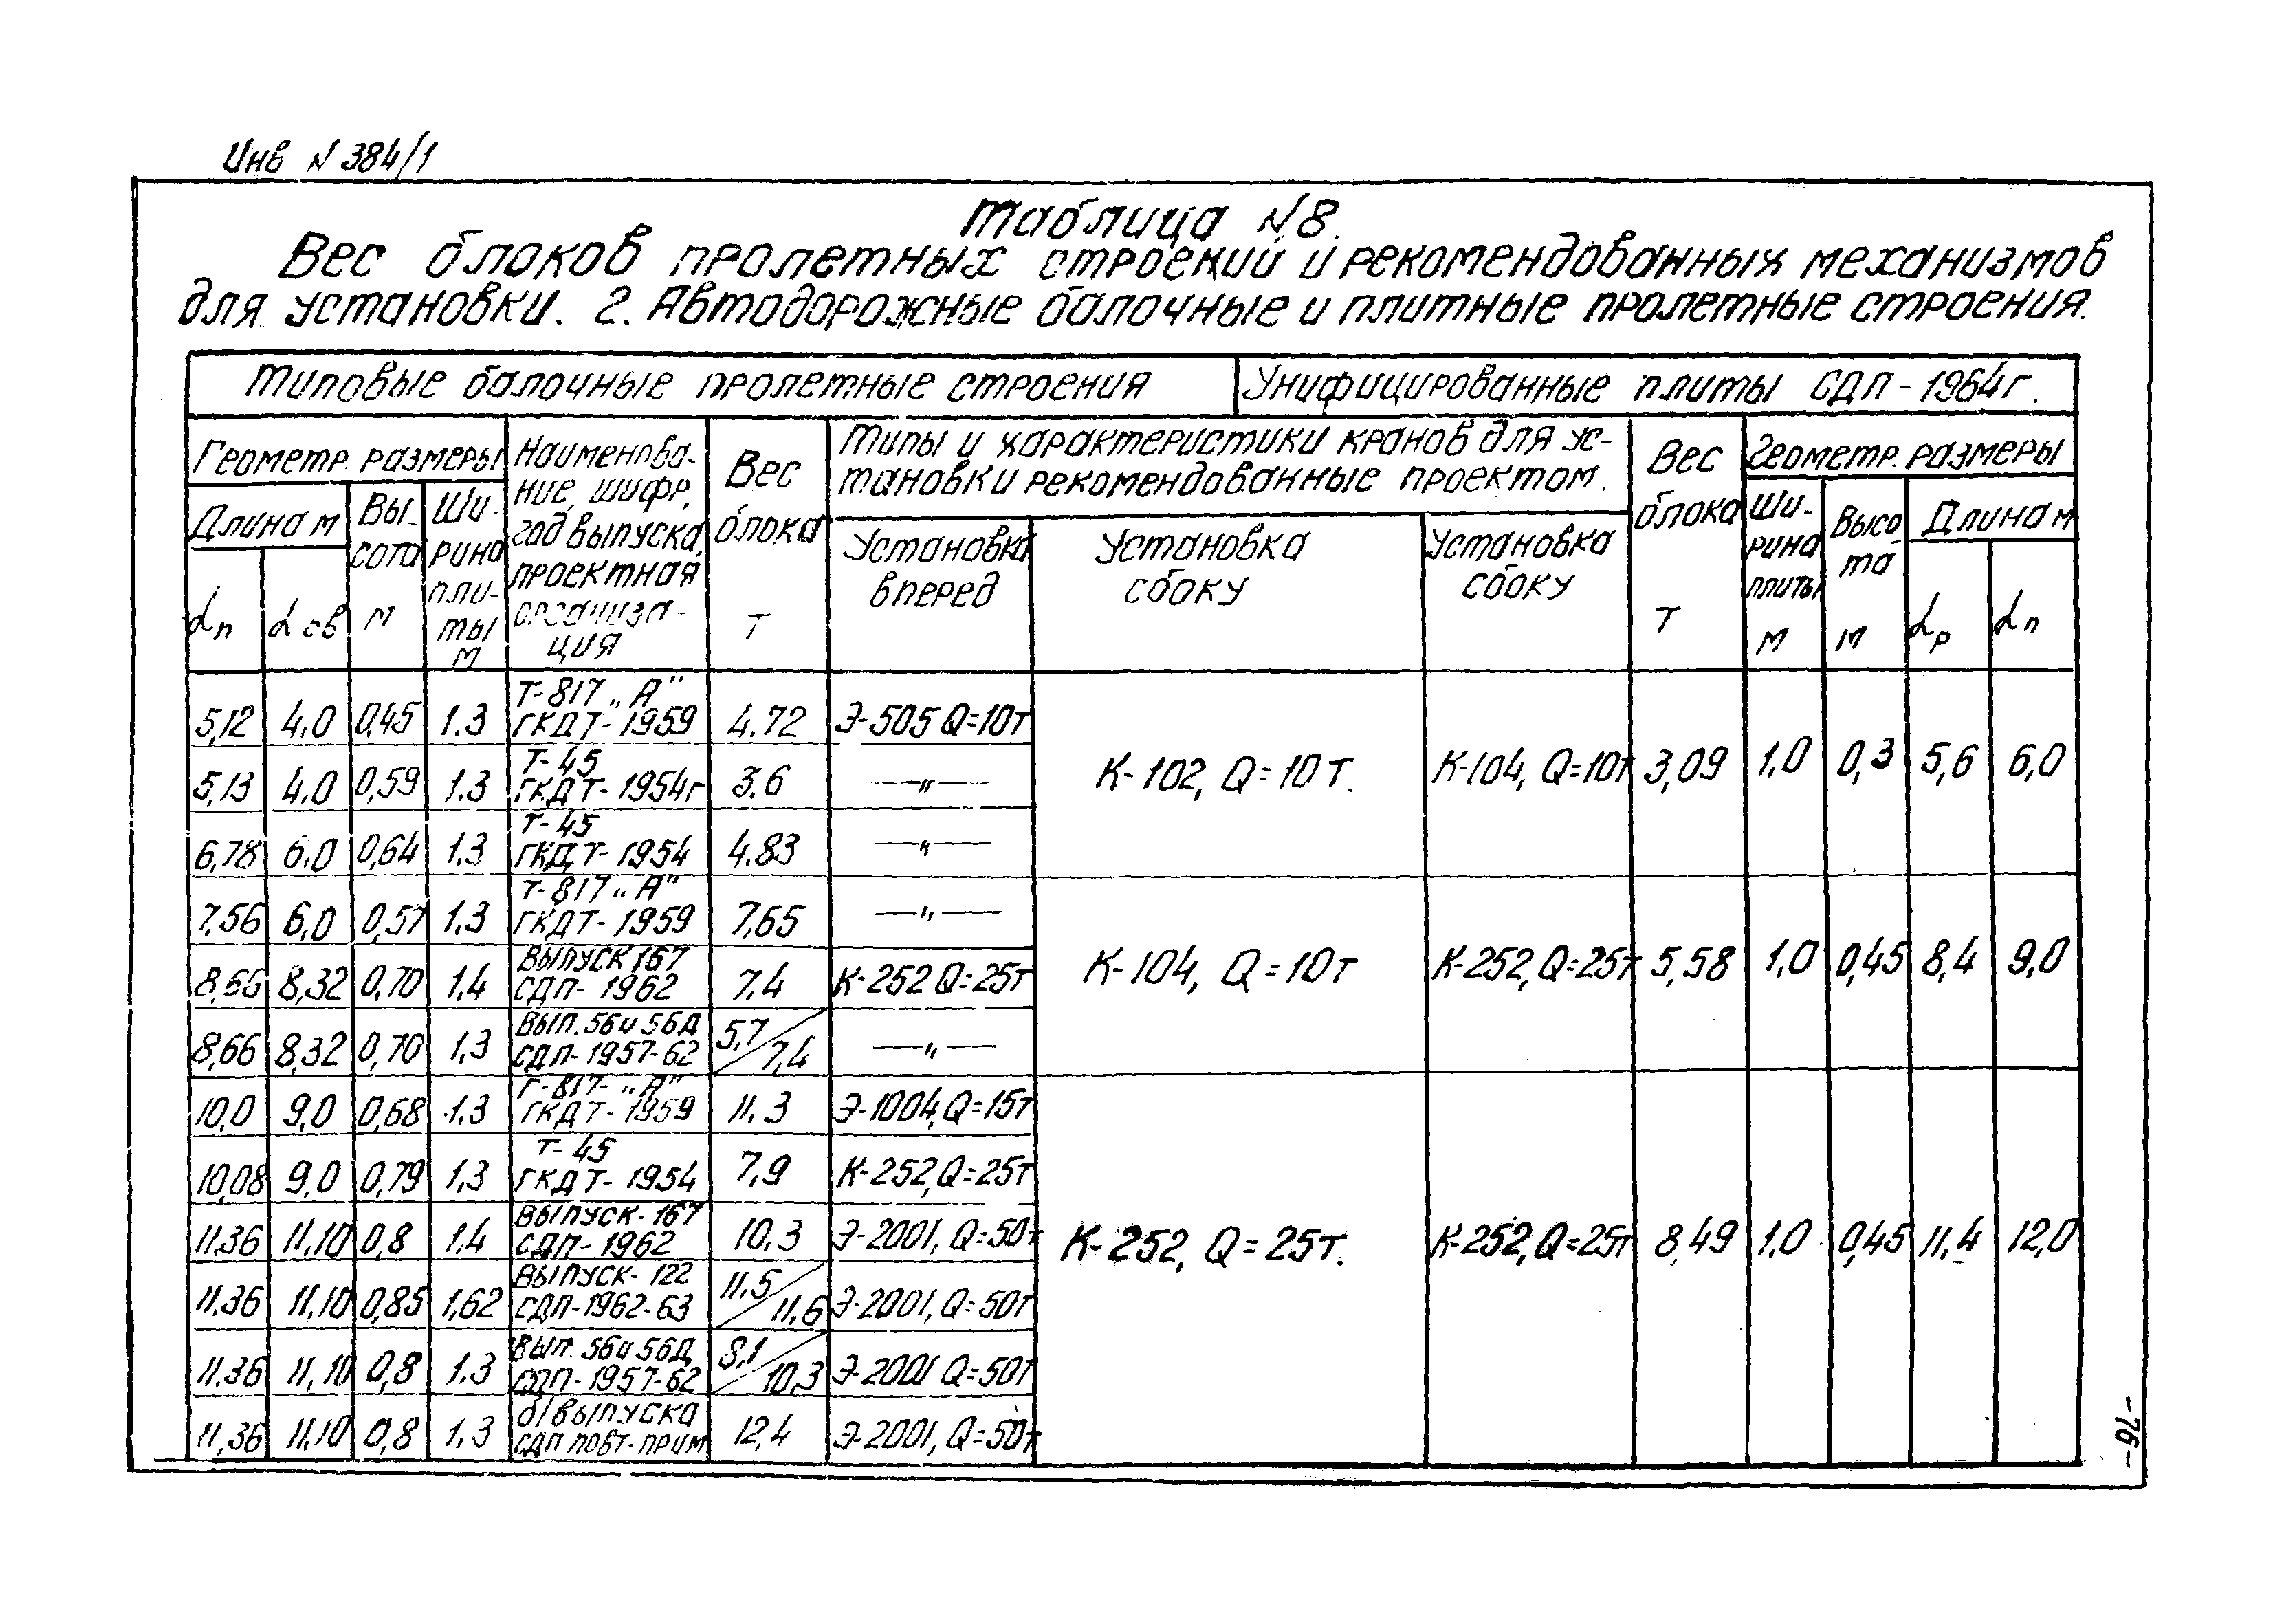 Инв N 384/1
Таблица N8.
Вес блоков пролетных строений и рекомендованных механизмов
для установки. 2. Автодорожные балочные и плитные пролетные строения.
Типовые балочные пролетные строения | Унифицированные плиты СДП - 1964г.
Геометр. размеры
Длина м
Lп
Lсв
Вы-
сота
м
Ши-
рина
пли-
ты
м
Наименова-
ние, шифр,
год выпуска,
проектная
организа-
ция
Вес
блока
т
Типы и характеристики кранов для ус-
тановки рекомендованные проектом.
Установка
вперед
Установка
сбоку
Установка
сбоку
Вес
блока
т
Геометр. размеры
Ши-
рина
плиты
м
Высо-
та
м
Длина м
Lр
Lп
5,12 4.0 0,45 1.3 Т-817 „А" ГКДТ-1959 4.72 Э-505 Q=10т
5,13 4.0 0,59 1.3 Т-45 ГКДТ-1954г 3.6 —„—
6,78 6.0 0,64 1.3 Т-45 ГКДТ-1954 4.83 —„—
К-102, Q=10т. К-104, Q=10т 3,09 1,0 0,3 5,6 6,0
7,56 6,0 0,57 1.3 Т-817 „А" ГКДТ-1959 7,65 —„—
8,66 8,32 0,70 1,4 Выпуск 167 СДП-1962 7.4 К-252 Q=25т
8,66 8,32 0,70 1,3 Вып. 56 и 56Д СДП-1957-62 5,7/7,4 —„—
К-104, Q=10т К-252, Q=25т 5,58 1,0 0,45 8,4 9,0
10,0 9,0 0,68 1.3 Т-817-„А" ГКДТ-1959 11.3 Э-1004, Q=15т
10,08 9,0 0,79 1,3 Т-45 ГКДТ-1954 7,9 К-252, Q=25т
11.36 11,10 0,8 1.4 Выпуск-167 СДП-1962 10,3 Э-2001, Q=50т
11.36 11,10 0,85 1,62 Выпуск-122 СДП-1962-63 11,5/11,6 Э-2001, Q=50т
11.36 11,10 0,8 1.3 Вып. 56 и 56Д СДП-1957-62 8,1/10,3 Э-2001 Q=50т
11,36 11,10 0,8 1,3 б/выпуска СДП повт-прим 12,4 Э-2001, Q=50т
К-252, Q=25т. К-252, Q=25т 8,49 1,0 0,45 11,4 12,0
-76-